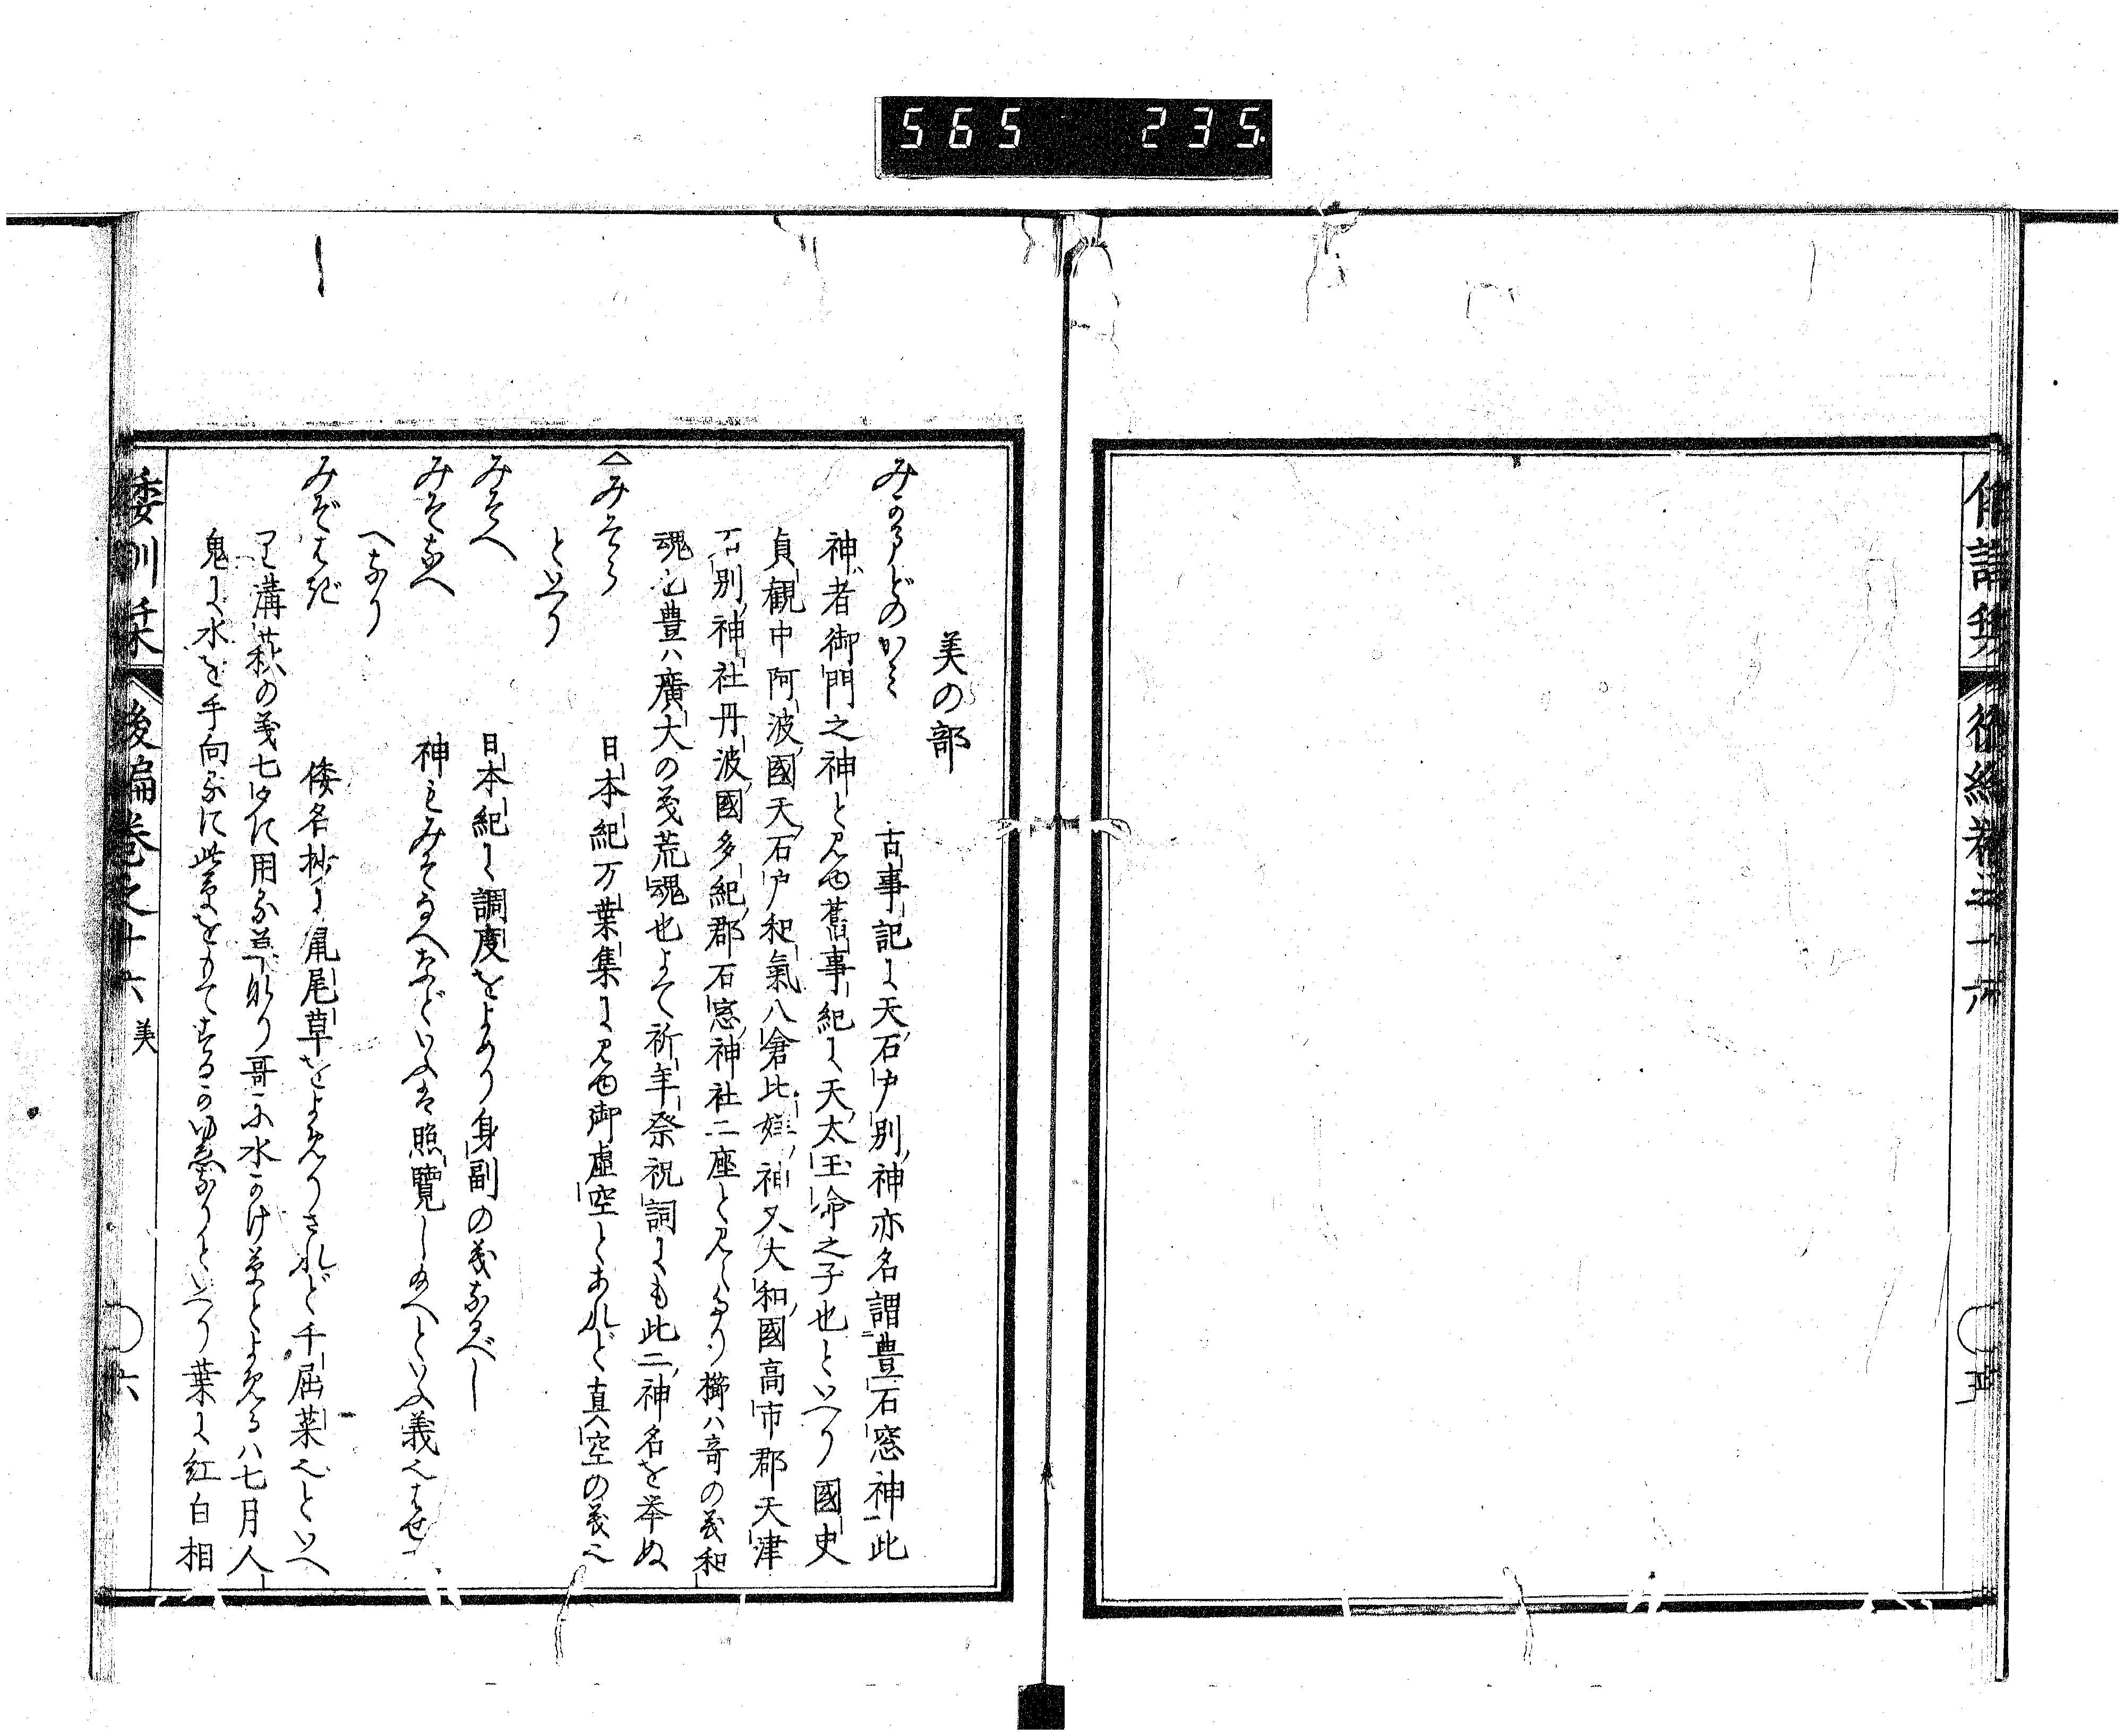 565 235
美の部
みかどのかみ 古事記に天石戸別神亦名謂豊石窓神此
神者御門之神と見ゆ舊事紀に天太玉命之子也といへり國史
貞観中阿波國天石戸和氣八倉比姪神又大和國高市郡天津
石別神社丹波國多紀郡石窓神社二座と見えたり櫛ハ奇の義和
魂也豊ハ廣大の義荒魂也よて祈年祭祝詞にも此二神名を挙ぬ
△みそら 日本紀万葉集に見ゆ御虚空とあれど真空の義也
といへり
みそへ 日本紀に調度をよめり身副の義なるべし
みそなへ 神もみそなへなどいふは照覽し給へといふ義也はせ
へなり
みぞはぎ 倭名抄に鼠尾草をよめりされど千屈菜也といへ
り溝萩の義七夕に用る草なり哥に水かけ草とよめるハ七月人
鬼に水を手向るに此草をもてするのゆゑなりといへり葉に紅白相
倭訓栞 後編巻之十六 美 〇六